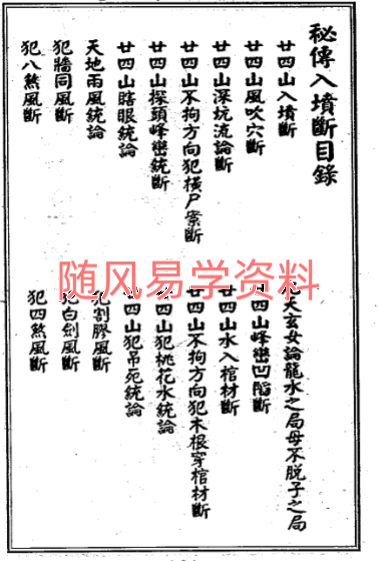 秘傳入墳斷目錄
廿四山入墳斷
廿四山風吹穴斷
廿四山深坑流論斷
廿四山不拘方向犯橫尸案斷
廿四山探頭峰巒統斷
廿四山瞎眼統論
天地雨風統論
犯牆同風斷
犯八煞風斷
天玄女論龍水之局母不脱子之局
廿四山峰巒凹陷斷
廿四山水入棺材斷
廿四山不拘方向犯木根穿棺材斷
廿四山犯桃花水統論
廿四山犯吊死統論
犯割膠風斷
犯白劍風斷
犯四煞風斷
随风易学资料